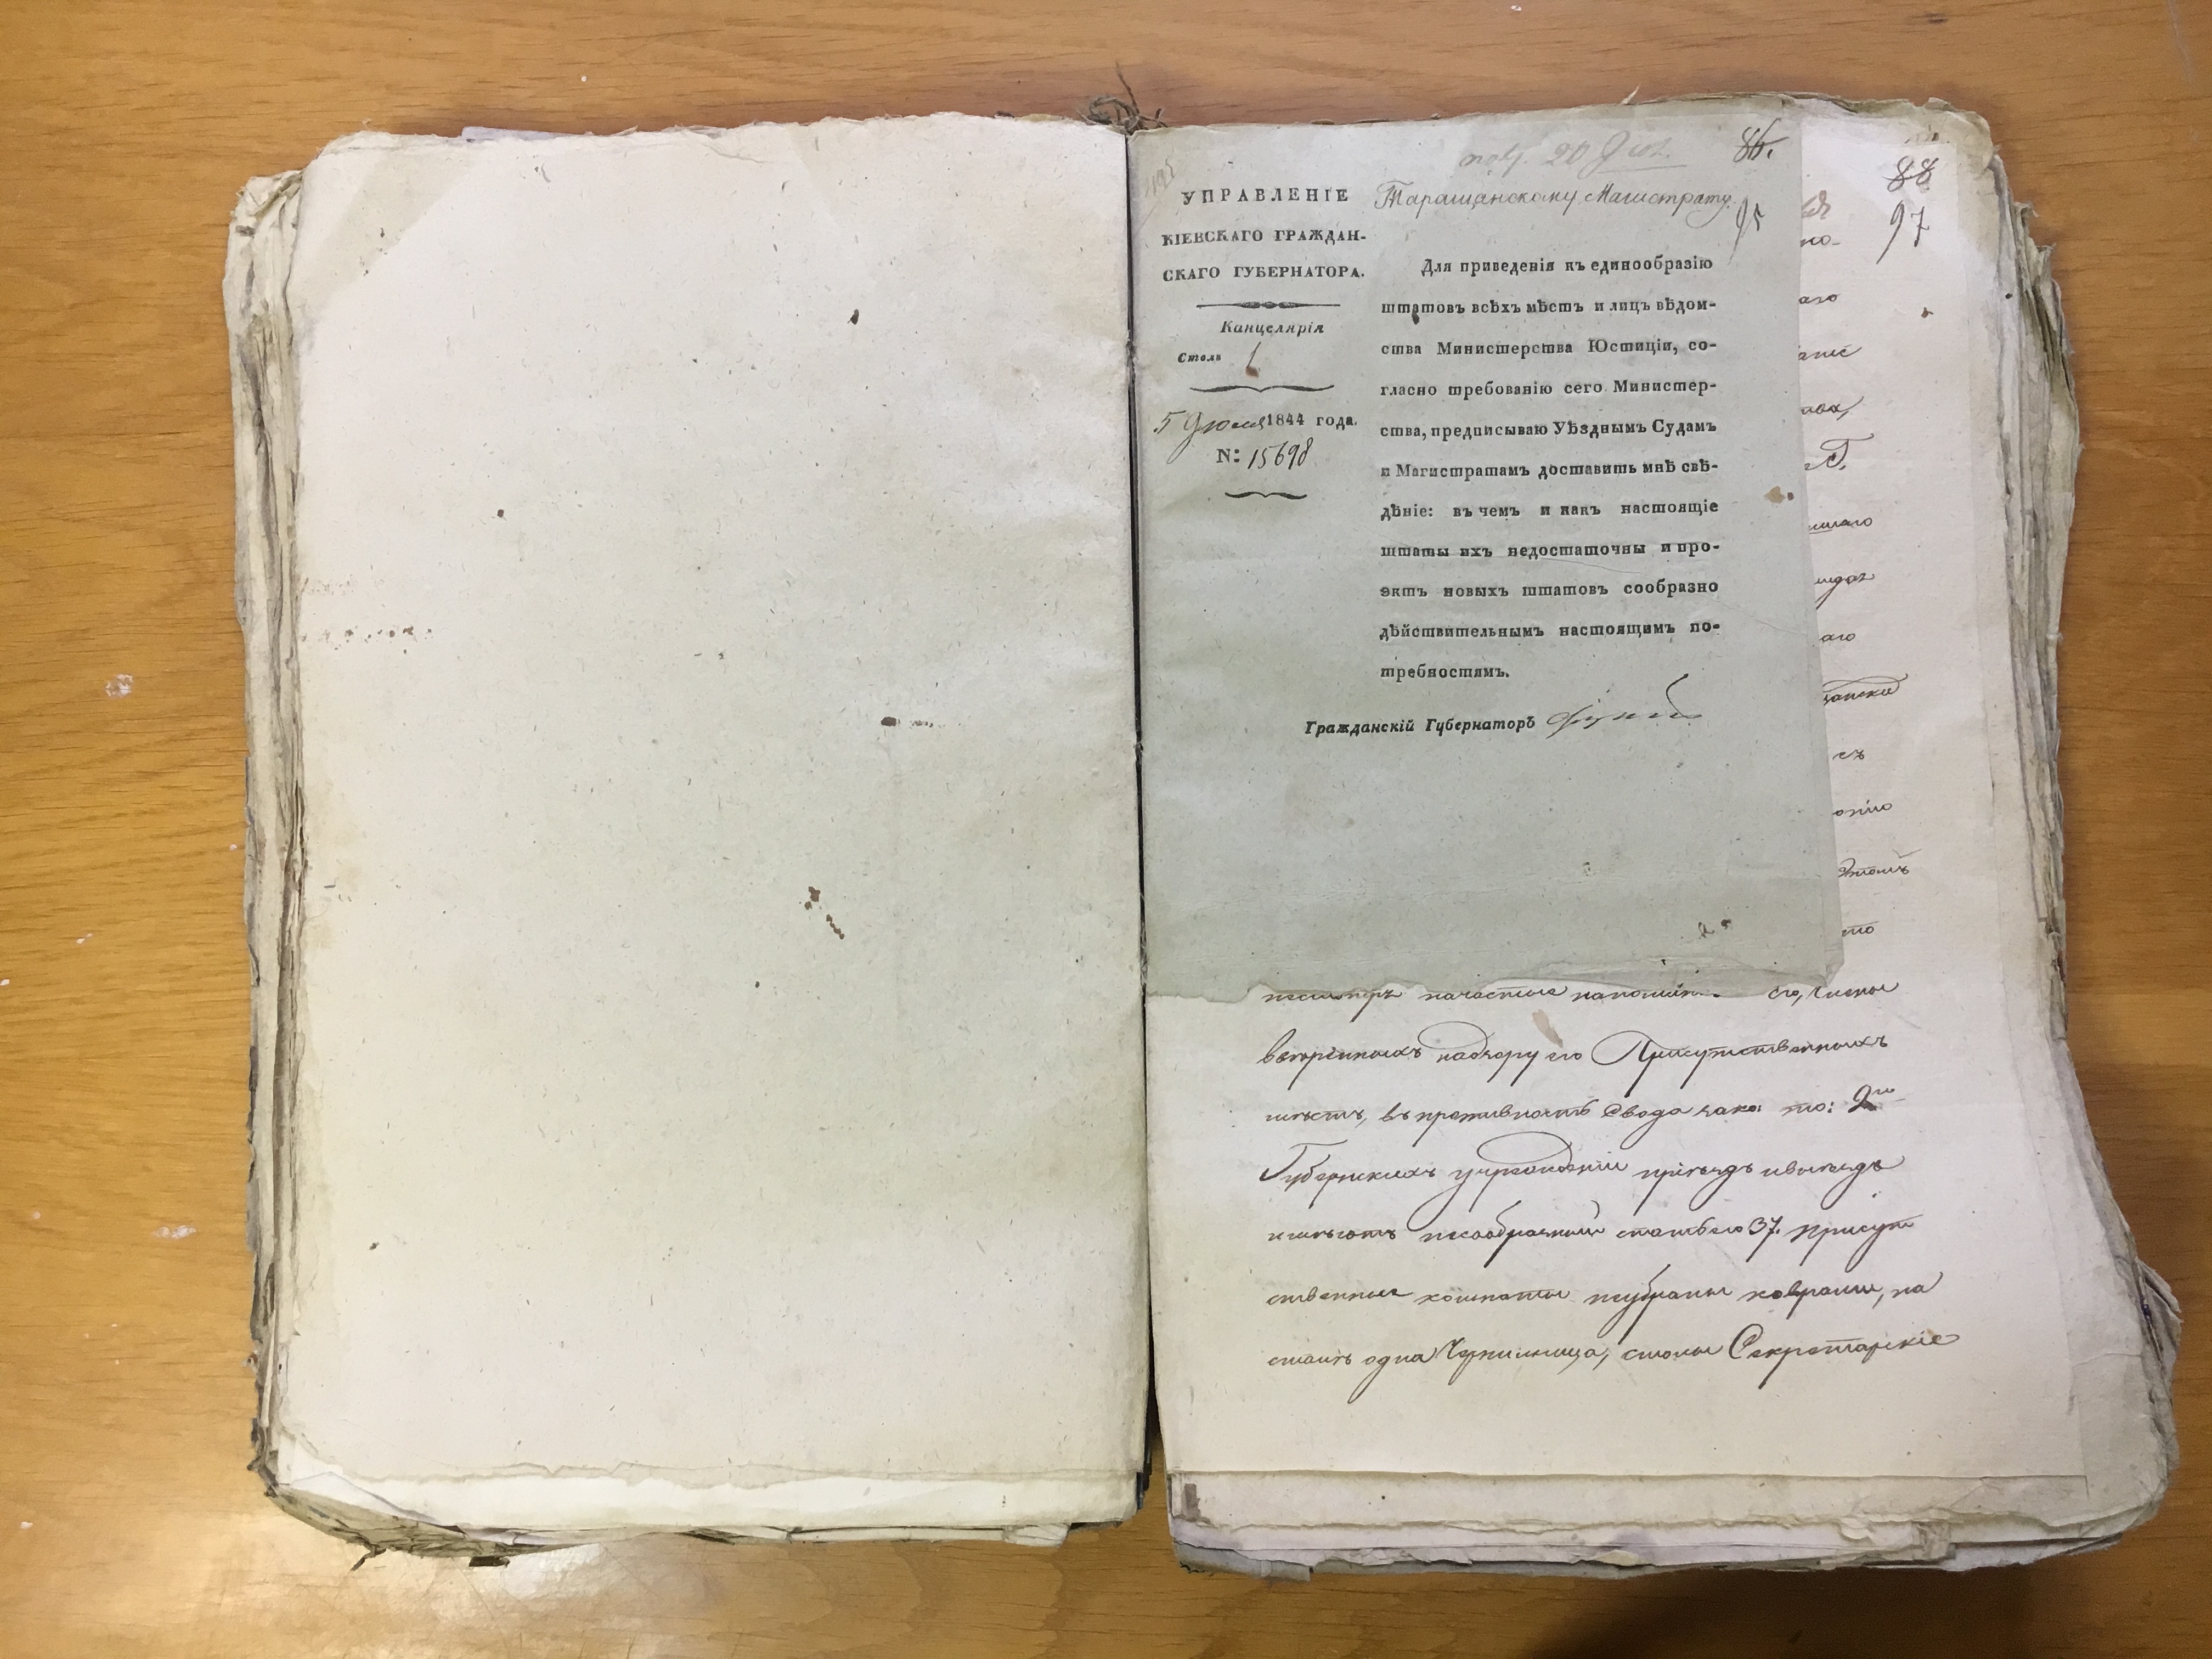 86.
УПРАВЛЕНІЕ
КІЕВСКАГО ГРАЖДАН-
СКАГО ГУБЕРНАТОРА.
Канцелярія
Столъ 1
5 Іюля 1844 года.
N: 15698
Таращанскому Магистрату.
95
Для приведенія къ единообразію
штатовъ всѣхъ мѣстъ и лицъ вѣдом-
ства Министерства Юстиціи, со-
гласно требованію сего Министер-
ства, предписываю Уѣзднымъ Судамъ
и Магистратамъ доставить мнѣ свѣ-
дѣніе: въ чемъ и какъ настоящіе
штаты ихъ недостаточны и про-
эктъ новыхъ штатовъ сообразно
дѣйствительнымъ настоящимъ по-
требностямъ.
Гражданскій Губернаторъ
88
97
но-
аго
аніе
аго
съ
Этомъ
то
ввѣренныхъ надзору его Присутственныхъ
мѣстъ, въ противность Свода зако: то: 2го
Губернскихъ учрежденій пріѣздъ и выѣздъ
имѣютъ несообразный статьею 37. присут
ственные комнаты неубраны коврами, на
столѣ одна Чернильница, столы Секретарскіе